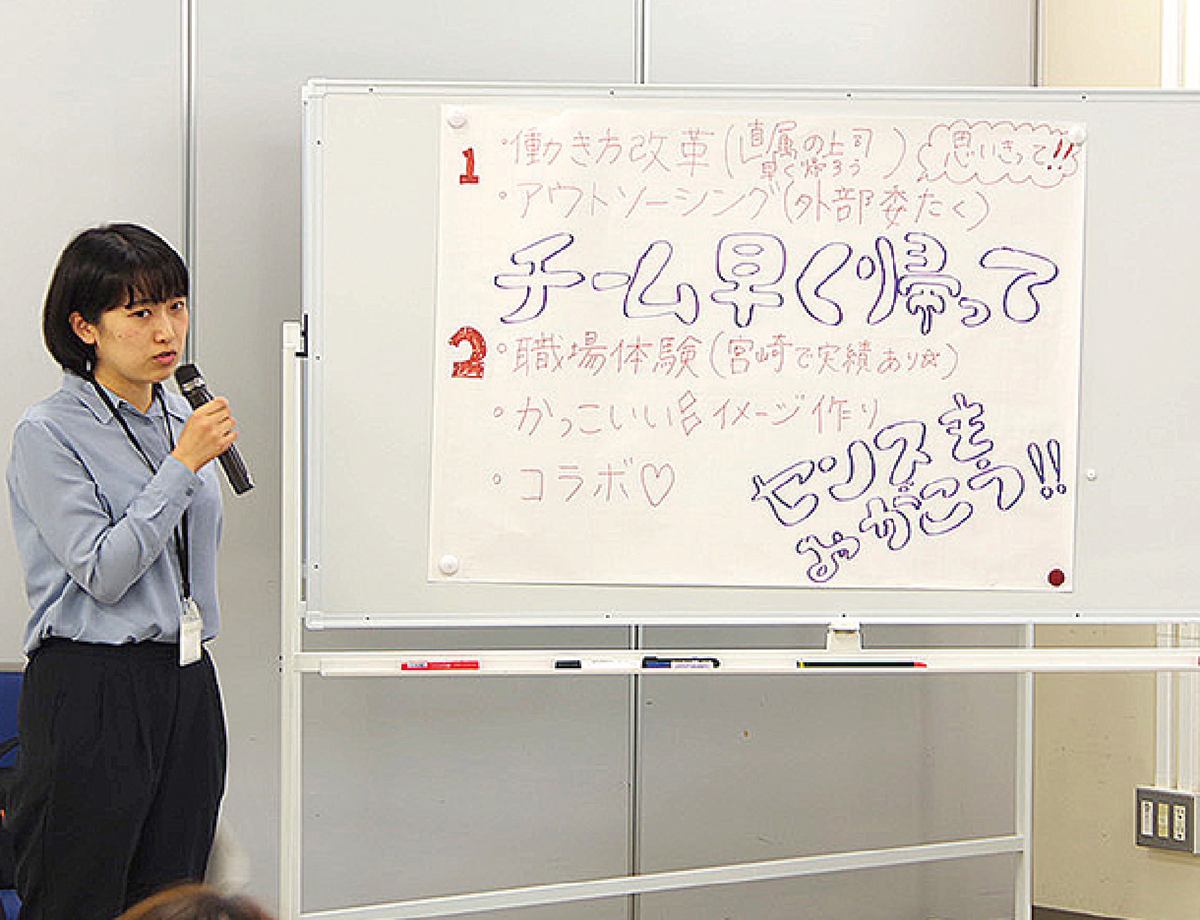 1 ・働き方改革(直属の上司 早く帰ろう) 思いきって!!
・アウトソーシング(外部委たく)
チーム早く帰って
2 ・職場体験(宮崎で実績あり☆)
・かっこいい名イメージ作り
・コラボ♡
センスを
みがこう!!